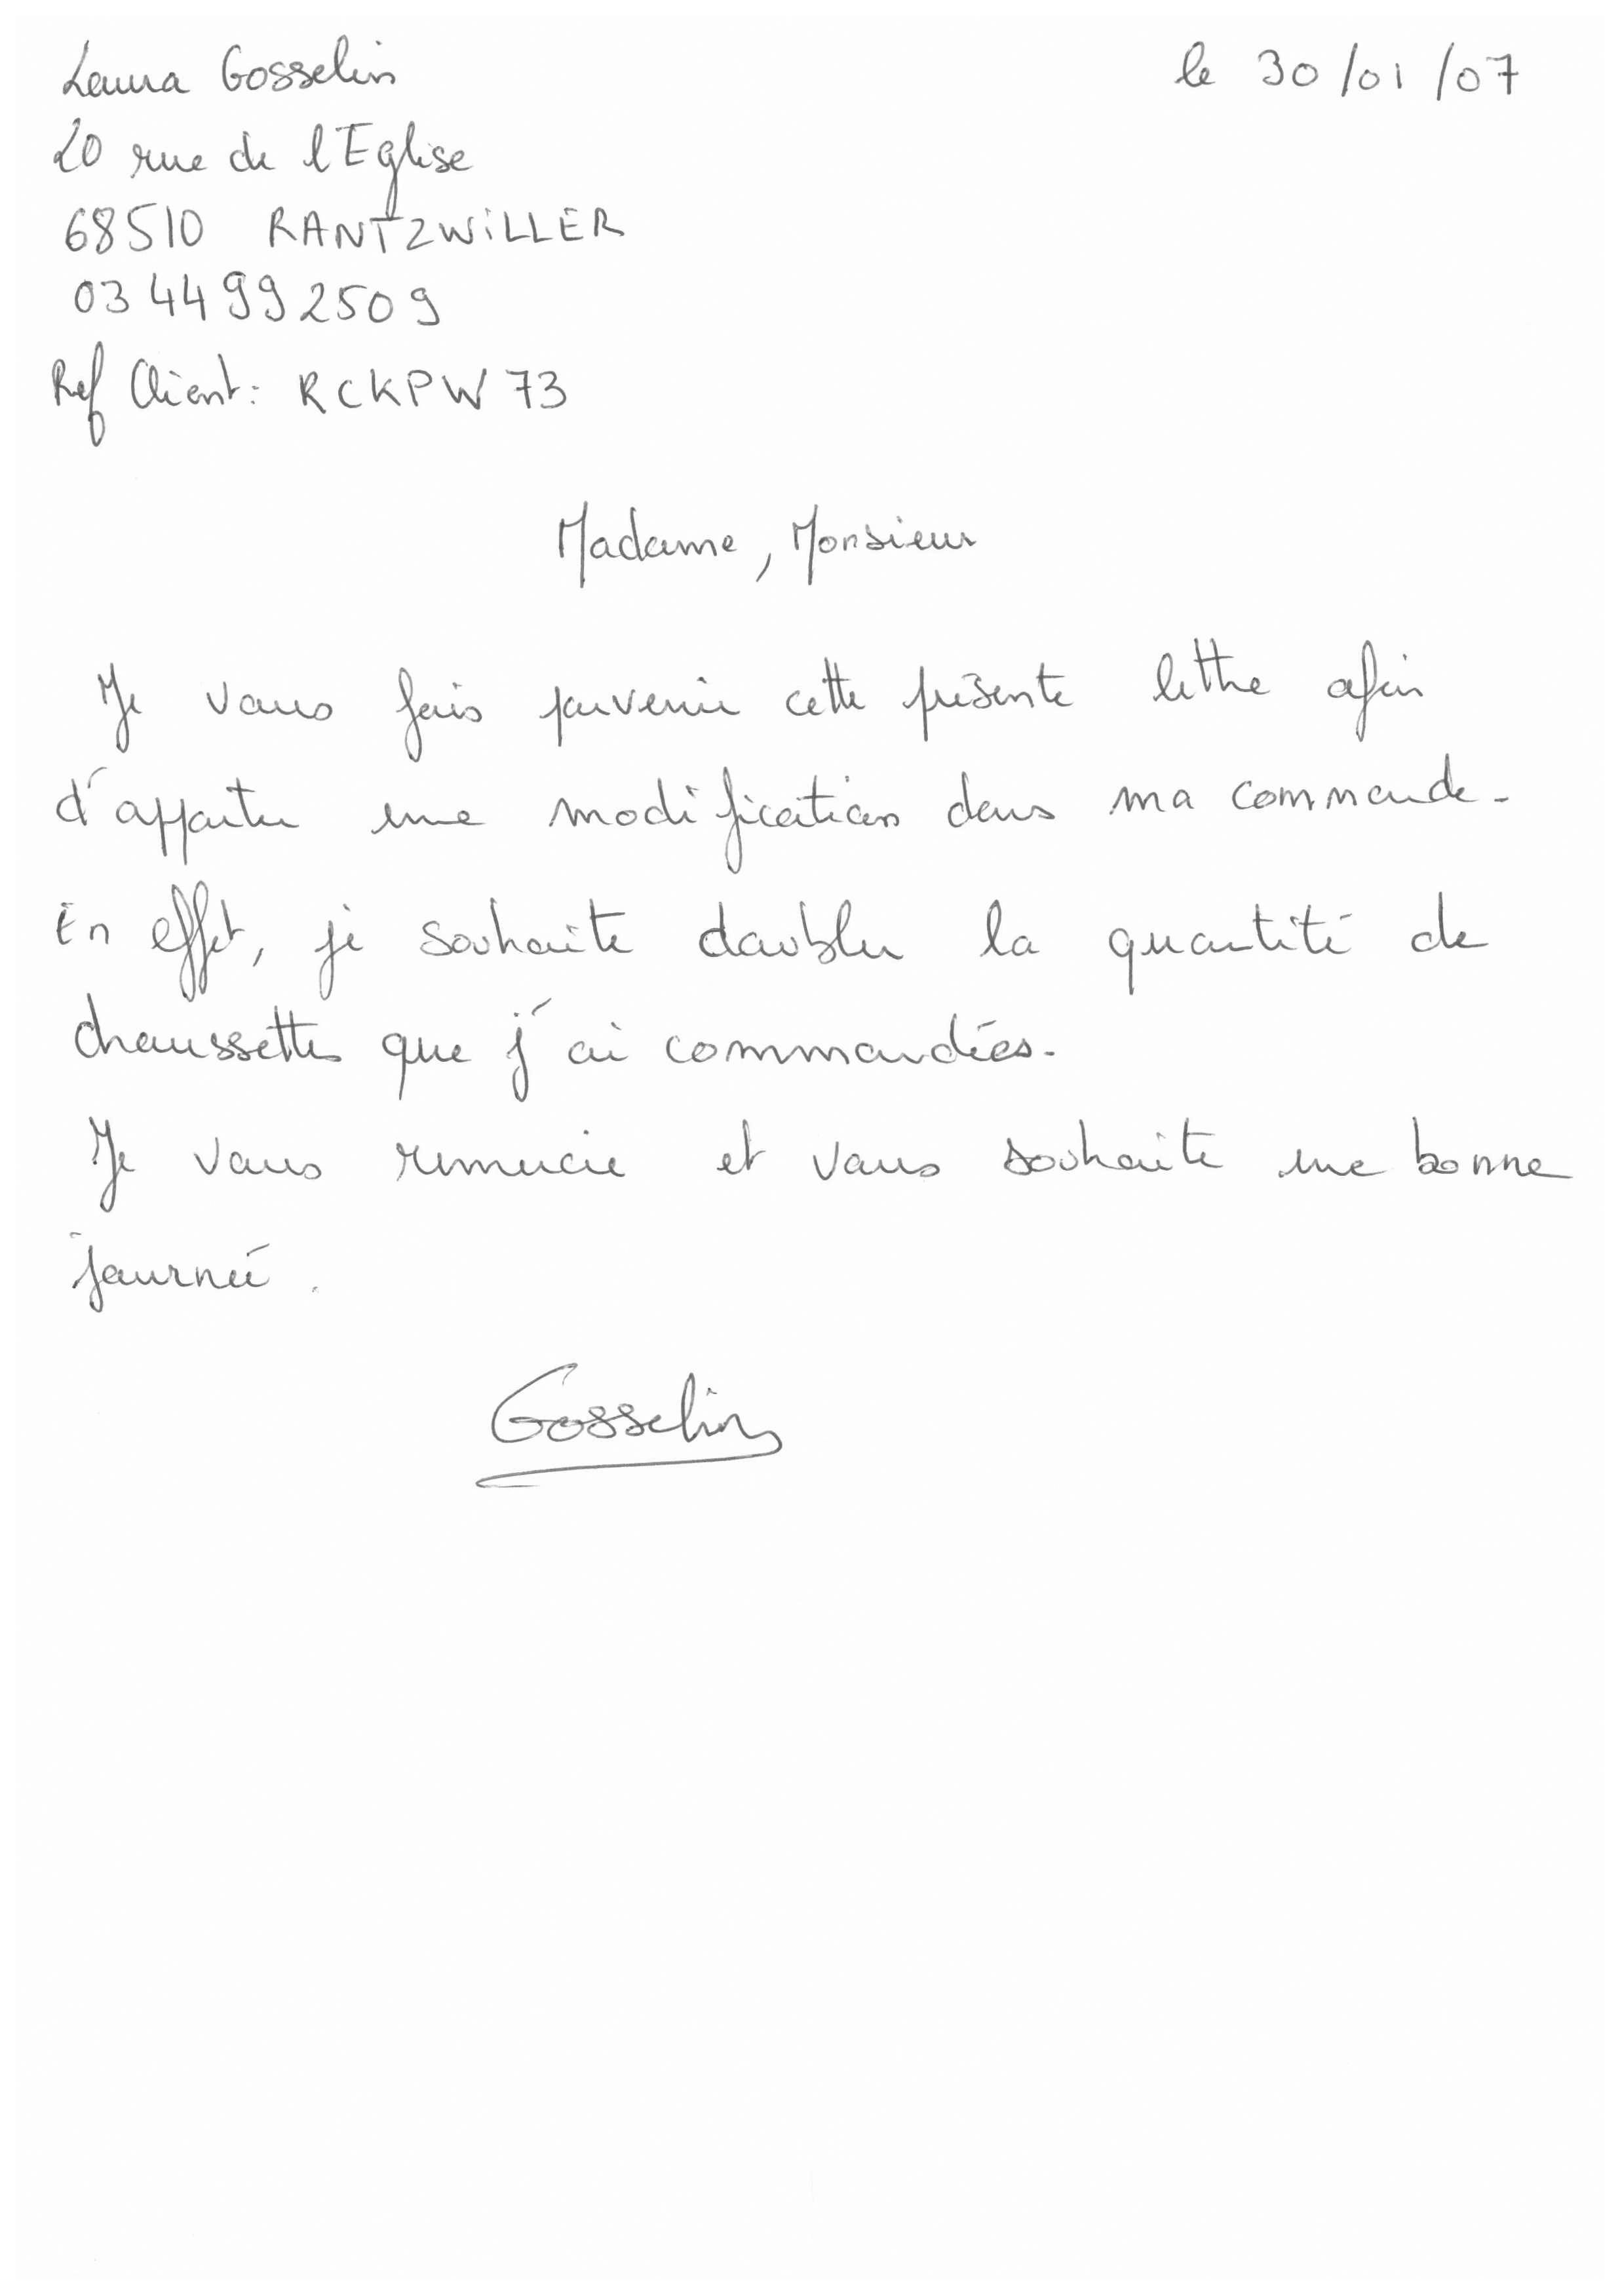 Laura Gosselin
le 30/01/07
20 rue de l'Eglise
68510 RANTZWiLLER
03 44 99 25 09
Ref Client: RCKPW 73
Madame, Monsieur
Je vous fais parvenir cette présente lettre afin
d'apporter une modification dans ma commande.
En effet, je souhaite doubler la quantité de
chaussettes que j'ai commandées.
Je vous remercie et vous souhaite une bonne
journée.
Gosselin